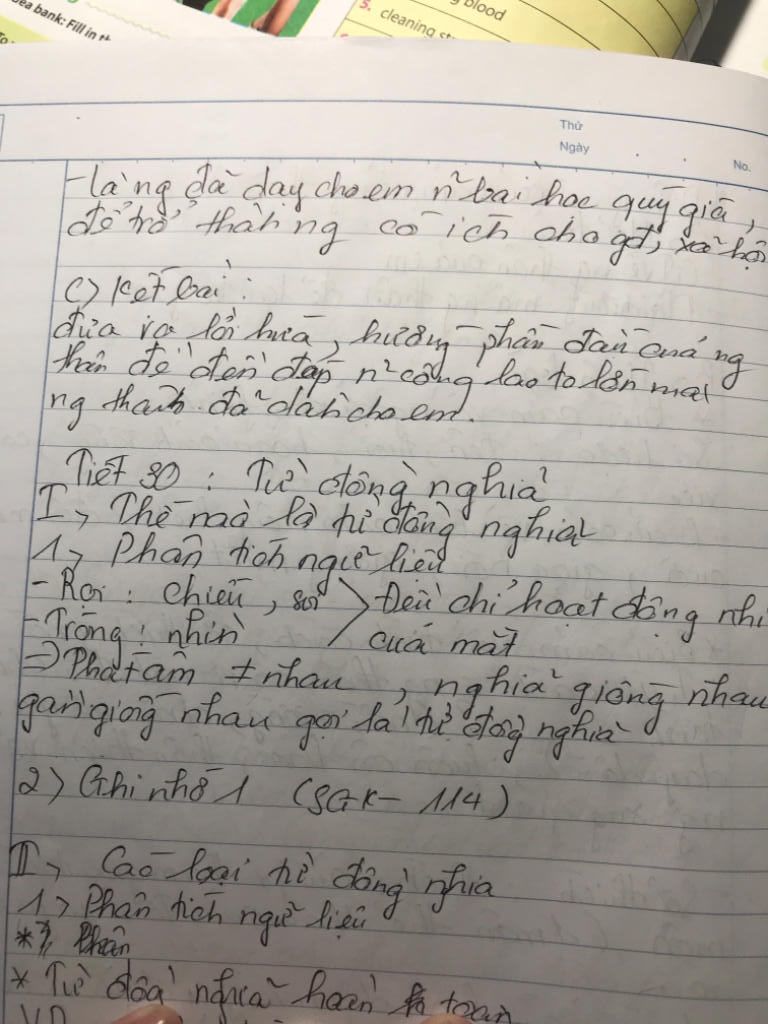 ea bank: Fill in th
To
5.
g blood
cleaning st
Thứ
Ngày
No.
-làng đã dạy cho em n~ bài học quý giá,
để trở thành ng có ích cho gđ, xã hội
c) Kết bài:
đưa ra lời hứa, hướng phấn đấu của ng
thân để đền đáp n~ công lao to lớn mà
ng thân đã dành cho em.
Tiết 30: Từ đồng nghĩa
I, Thế nào là từ đồng nghĩa
1, Phân tích ngữ liệu
- Rọi: chiếu, soi > Đều chỉ hoạt động nhì
-Trông: nhìn của mắt
=> Phát âm ≠ nhau, nghĩa giống nhau
gần giống nhau gọi là từ đồng nghĩa
2) Ghi nhớ 1 (SGK- 114)
II, Các loại từ đồng nghĩa
1, Phân tích ngữ liệu
* Phân
* Từ đồng nghĩa hoàn toàn
VD